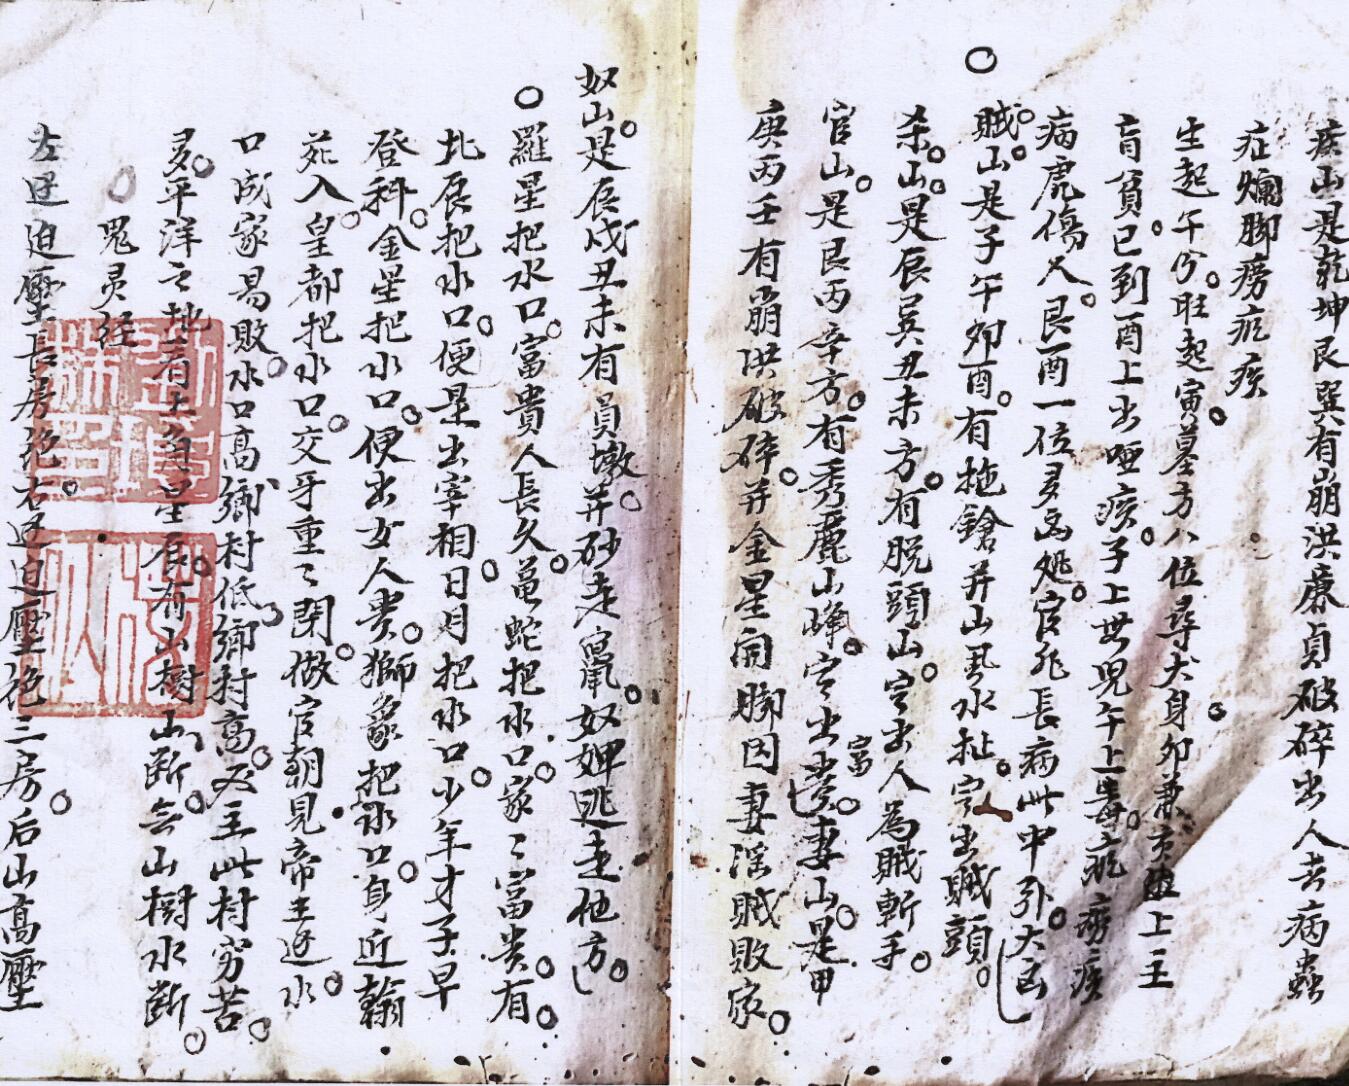 疾山是乾坤艮巽有崩洪廉貞破碎出人去病蟲
症爛脚痨疾
生起午兮旺起寅墓方八位尋犬身卯兼亥上主
盲貧已到酉上出哑疾子上世児午上毒痨疾
病虎傷人艮酉一位多凶死官非長病此中引大凶
賊山是子午卯酉有拖鎗并山風水扯定出賊頭
杀山是辰巽丑未方有脱頭山定出人為賊斬手
官山是艮丙辛方有秀麗山峰定出富貴妻山是甲
庚丙壬有崩洪破碎并金星開脚因妻淫賊敗家
奴山是辰戌丑未有員墩并砂走竄奴婢逃走他方
羅星把水口富貴人長久龜蛇把水口家〻富贵有
北辰把水口便是出宰相日月把水口少年才子早
登科金星把水口便出女人贵獅象把水口身近翰
苑入皇都把水口交牙重〻閉做官朝見帝王逆水
口成家易敗水口高鄉村低鄉村高反主此村穷苦
多平洋之地看土角星辰有山樹山断无山樹水断
鬼灵经
左逼迫壓長房绝右逼迫壓绝三房后山高壓